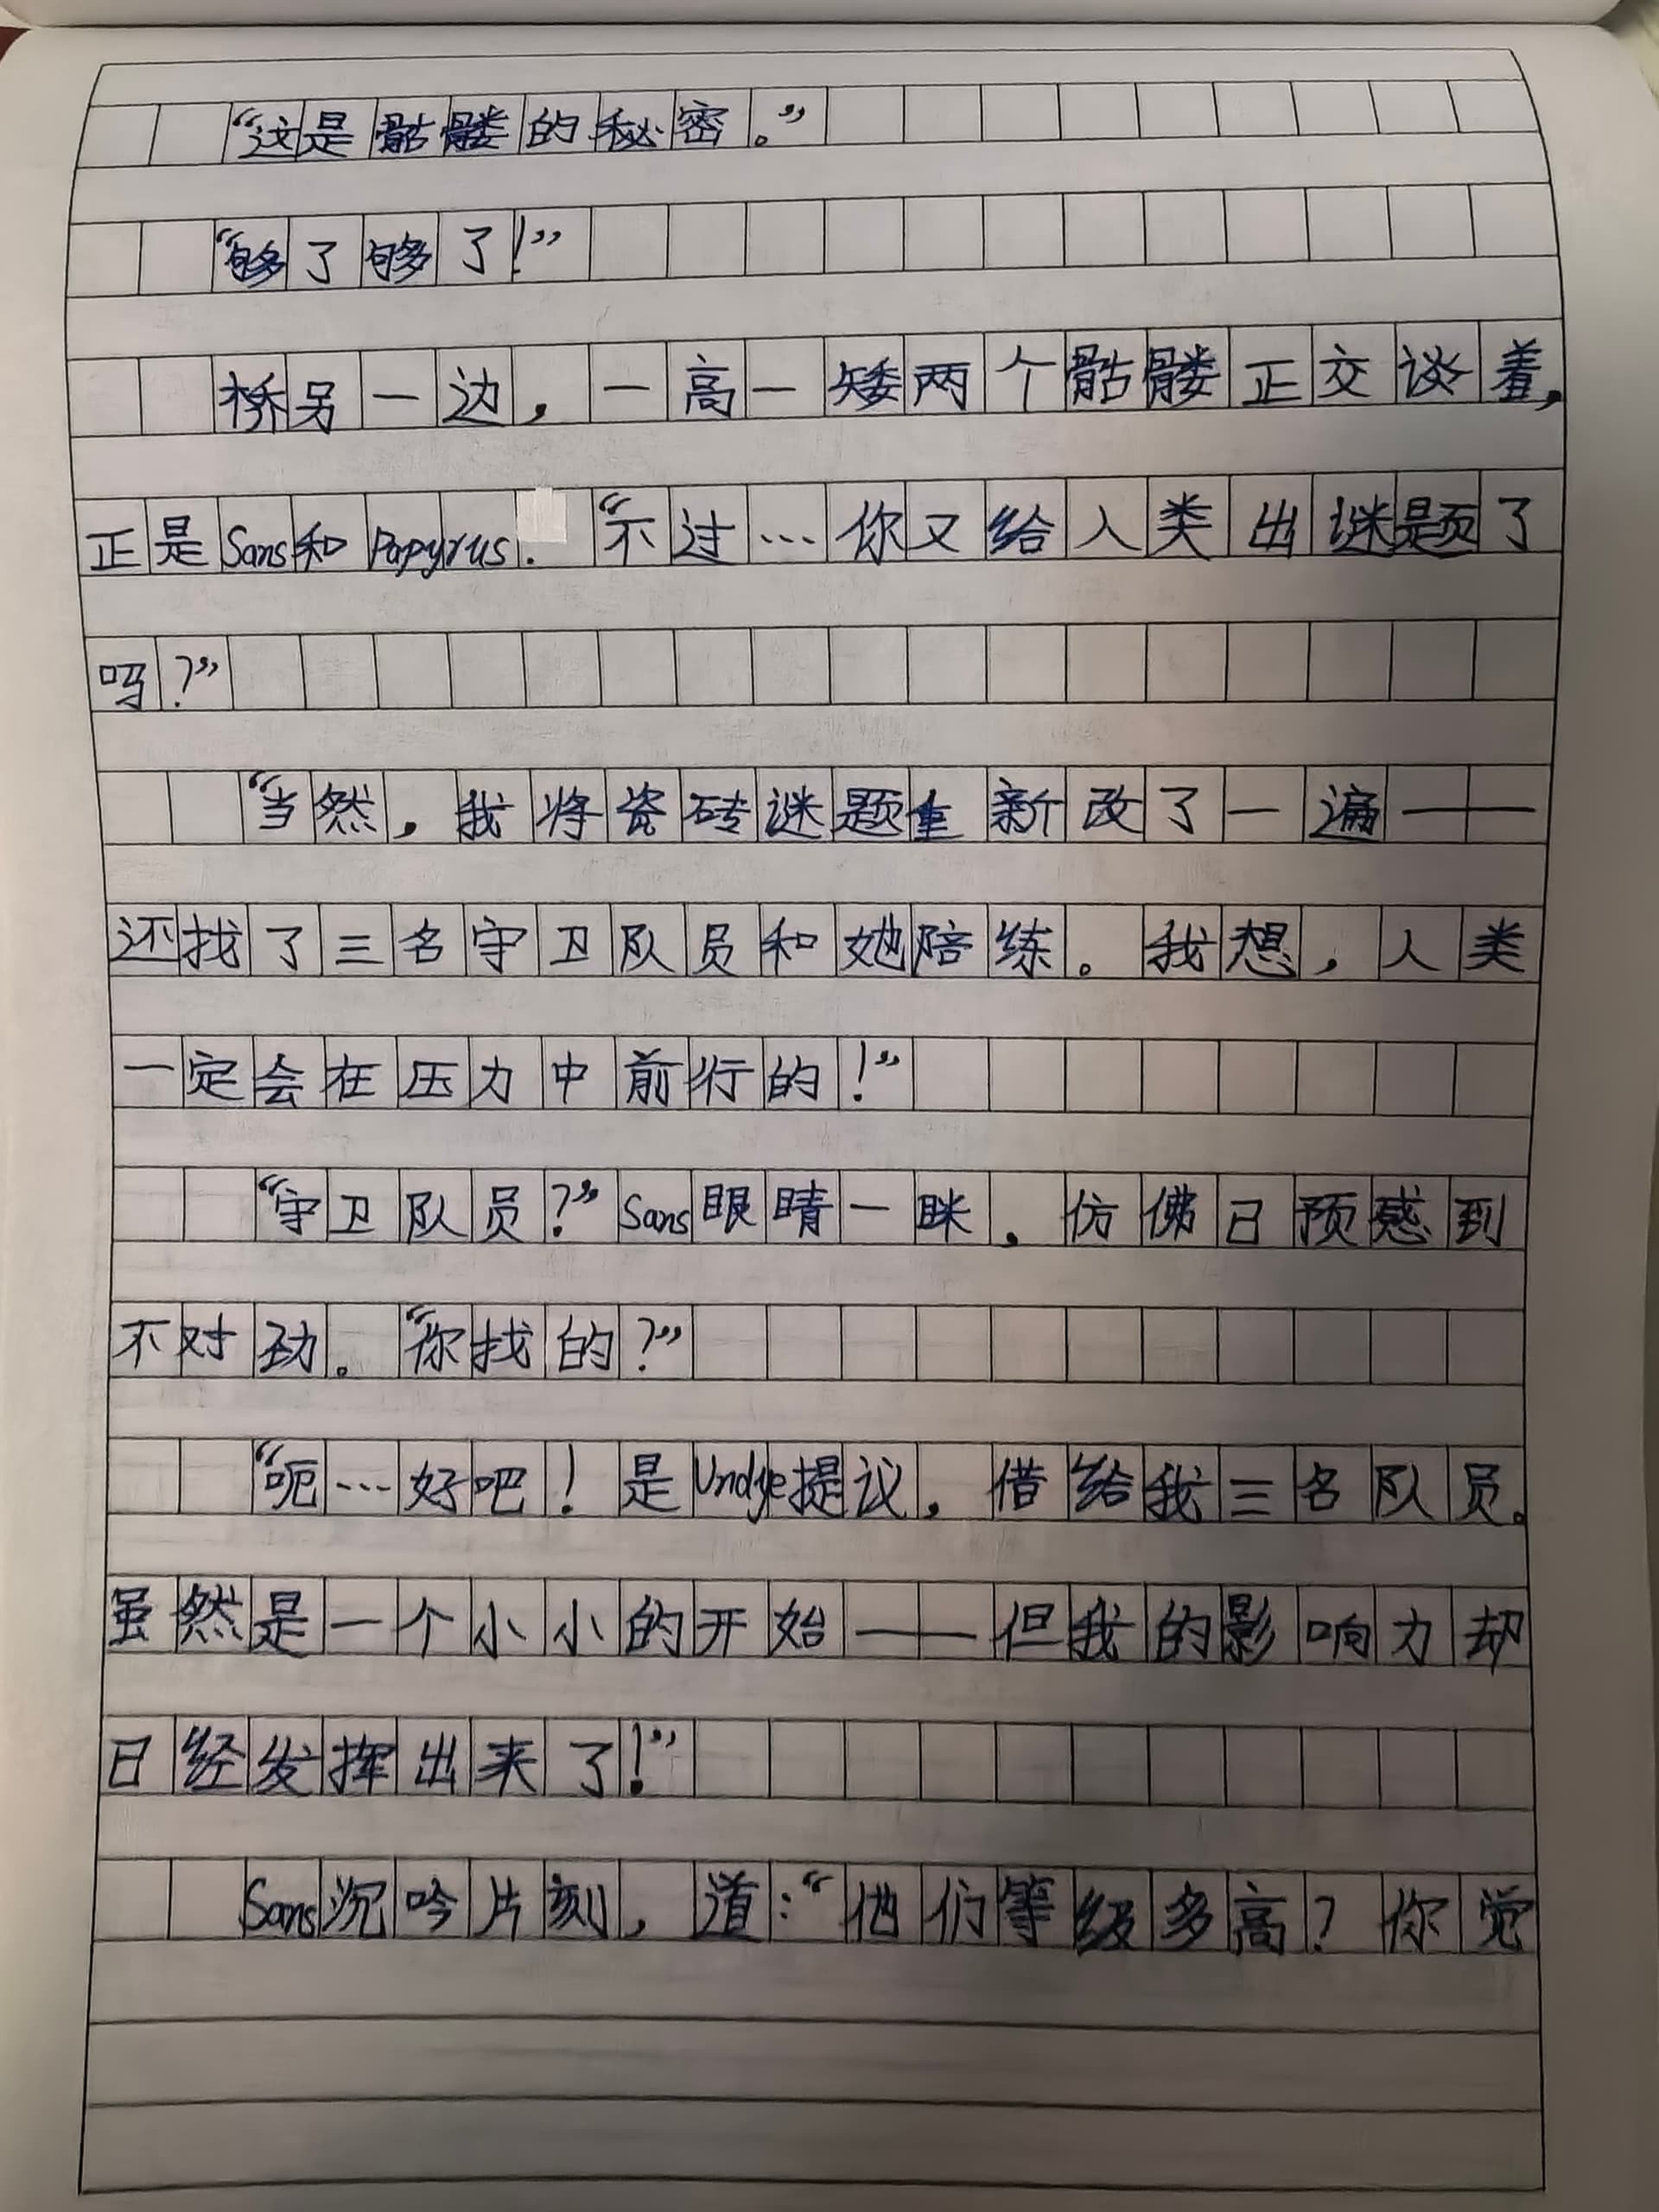 “这是骷髅的秘密。”
“够了够了!”
桥另一边，一高一矮两个骷髅正交谈着，
正是Sans和Papyrus. “不过…你又给人类出谜题了
吗？”
“当然，我将瓷砖谜题重新改了一遍——
还找了三名守卫队员和她陪练。我想，人类
一定会在压力中前行的！”
“守卫队员？”Sans眼睛一眯，仿佛已预感到
不对劲。“你找的？”
“呃…好吧！是Undye提议，借给我三名队员。
虽然是一个小小的开始——但我的影响力却
已经发挥出来了！”
Sans沉吟片刻，道：“他们等级多高？你觉